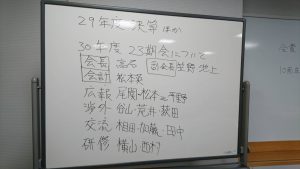 29年度決算ほか
30年度 23期会について
会長 高名 副会長 笠野 池上
会計 松本英
広報 尾関・松本 平野
渉外 谷山・荒井・荻田
交流 相田・加藤・田中
研修 横山・西村
会費